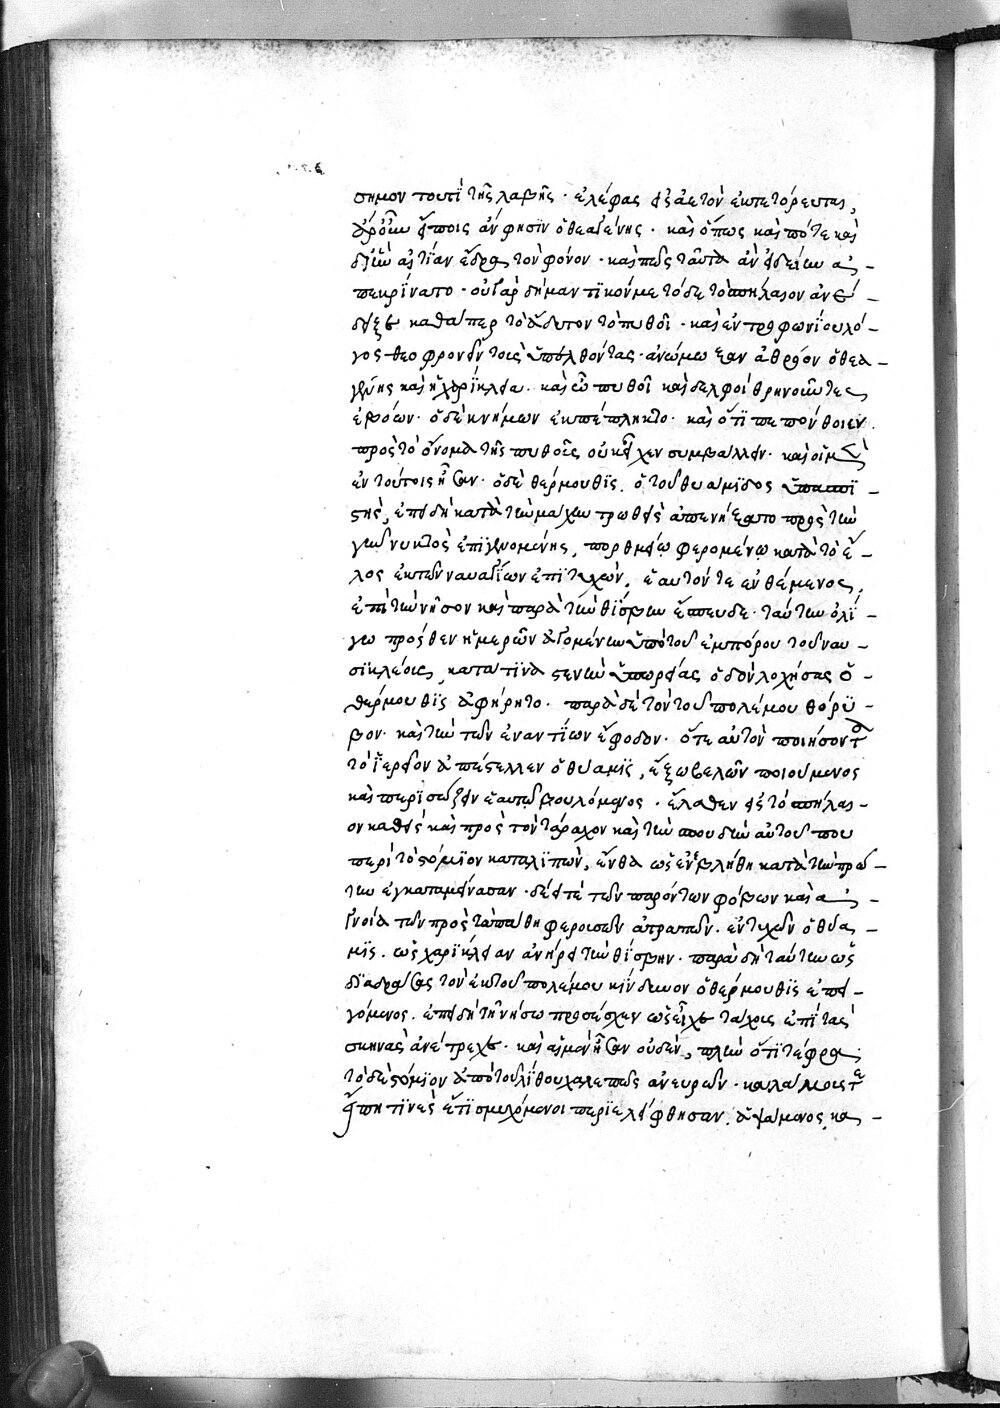 σημον τουτὶ τῆς λαβῆς· ἐλέφας εἰς ἀετὸν ἐκτετόρευται,
εἴποις ἂν φησὶν ὁ θεαγένης· καὶ ὅπως καὶ πότε καὶ
δι' ἣν αἰτίαν ἔδρα τὸν φόνον· καὶ πῶς ταῦτα ἂν εἰδείην ἀ-
πεκρίνατο· οὐ γὰρ δὴ μαντικόν με τόδε τὸ σπήλαιον ἀνέ-
δειξε καθάπερ τὸ ἄδυτον τὸ πυθοῖ· καὶ ἐν τροφωνίου λό-
γος θεοφορεῖν τοὺς ὑπελθόντας· ἀνώμωξαν ἀθρόον ὁ θεα-
γένης καὶ ἡ χαρίκλεια· καὶ ὦ πυθοῖ καὶ δελφοὶ θρηνοῦντες
ἐβόων· ὁ δὲ κνήμων ἐκπέπληκτο· καὶ ὅτι πεπόνθοιεν
πρὸς τὸ ὄνομα τῆς πυθοῦς οὐκ εἶχεν συμβάλλειν· καὶ οἱ μὲν
ἐν τούτοις ἦσαν· ὁ δὲ θέρμουθις, ὁ τοῦ θυάμιδος ὑπασπι-
στής, ἐπειδὴ κατὰ τὴν μάχην τρωθεὶς ἀπενήξατο πρὸς τὴν
γῆν νυκτὸς ἐπιγενομένης, πορθμείῳ φερομένῳ κατὰ τὸ ἕ-
λος ἐκ τῶν ναυαγίων ἐπιτυχών, ἑαυτόν τε ἐνθέμενος,
ἐπὶ τὴν νῆσον καὶ παρὰ τὴν θίσβην ἔσπευδε· ταύτην ὀλί-
γῳ πρόσθεν ἡμερῶν ἀγομένην ὑπὸ τοῦ ἐμπόρου τοῦ ναυ-
σικλέους, κατά τινα στενὴν ὑπωρείας ὁδὸν λοχήσας ὁ
θέρμουθις ἀφήρητο· παρὰ δὲ τὸν τοῦ πολέμου θόρυ-
βον· καὶ τὴν τῶν ἐναντίων ἔφοδον· ὅτε αὐτὸν ποιήσοντα
τὸ ἱερεῖον ἀπέστελλεν ὁ θύαμις, ἔξω βελῶν ποιούμενος
καὶ περισώζειν ἑαυτῷ βουλόμενος· ἔλαθεν εἰς τὸ σπήλαι-
ον καθεὶς καὶ πρὸς τὸν τάραχον καὶ τὴν σπουδὴν αὐτοῦ που
περὶ τὸ στόμιον καταλιπών, ἔνθα ὡς ἐνεβλήθη κατὰ τὴν πρώ-
την ἐγκαταμείνασαν· δέει τε τῶν παρόντων φόβων καὶ ἀ-
γνοίᾳ τῶν πρὸς τὰ πάθη φερουσῶν ἀτραπῶν· ἐντυχὼν ὁ θύα-
μις· ὡς χαρίκλειαν ἀνῄρει τὴν θίσβην· παρὰ δὴ ταύτην ὡς
διαδράσας τὸν ἐκ τοῦ πολέμου κίνδυνον ὁ θέρμουθις ἐπει-
γόμενος· ἐπειδὴ τῇ νήσῳ προσέσχεν ὡς εἶχε τάχους ἐπὶ τὰς
σκηνὰς ἀνέτρεχε· καὶ αἱ μὲν ἦσαν οὐδέν, πλὴν ὅτι τέφρα·
τὸ δὲ στόμιον ἀπὸ τοῦ λίθου χαλεπῶς ἀνευρών· καλάμοις τε
εἴπῃ τινὲς ἔτι σμυχόμενοι περιελείφθησαν, ἁψάμενος, κα-